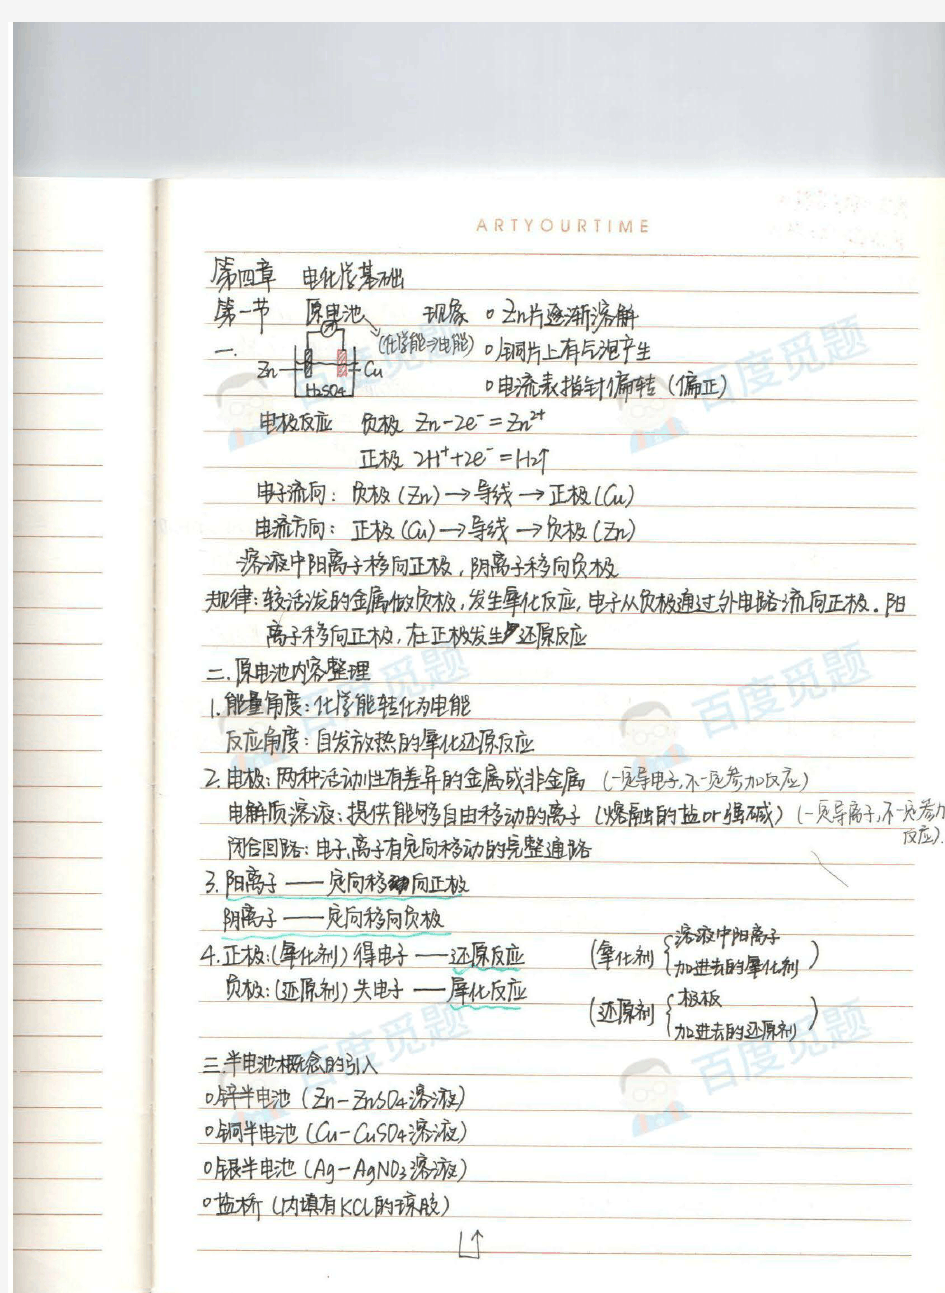 ARTYOURTIME
第四章 电化学基础
第一节 原电池 现象 ○Zn片逐渐溶解
一. (化学能→电能) ○铜片上有气泡产生
Zn Cu
H2SO4 ○电流表指针偏转(偏正)
电极反应 负极 Zn-2e⁻=Zn²⁺
正极 2H⁺+2e⁻=H2↑
电子流向:负极(Zn)→导线→正极(Cu)
电流方向:正极(Cu)→导线→负极(Zn)
溶液中阳离子移向正极,阴离子移向负极
规律:较活泼的金属做负极,发生氧化反应,电子从负极通过外电路流向正极。阳
离子移向正极,在正极发生还原反应
二.原电池内容整理
1.能量角度:化学能转化为电能
反应角度:自发放热的氧化还原反应
2.电极:两种活动性有差异的金属或非金属 (一定导电子,不一定参加反应)
电解质溶液:提供能够自由移动的离子(熔融的盐or强碱)(一定导离子,不一定参加
反应).
闭合回路:电子,离子有定向移动的完整通路
3.阳离子——定向移向正极
阴离子——定向移向负极
4.正极:(氧化剂)得电子——还原反应 (氧化剂{溶液中阳离子
加进去的氧化剂)
负极:(还原剂)失电子——氧化反应 (还原剂{极板
加进去的还原剂)
三.半电池概念的引入
○锌半电池(Zn-ZnSO4溶液)
○铜半电池(Cu-CuSO4溶液)
○银半电池(Ag-AgNO3溶液)
○盐桥(内填有KCl的琼胶)
百度觅题
百度觅题
百度觅题
百度觅题
百度觅题
百度觅题